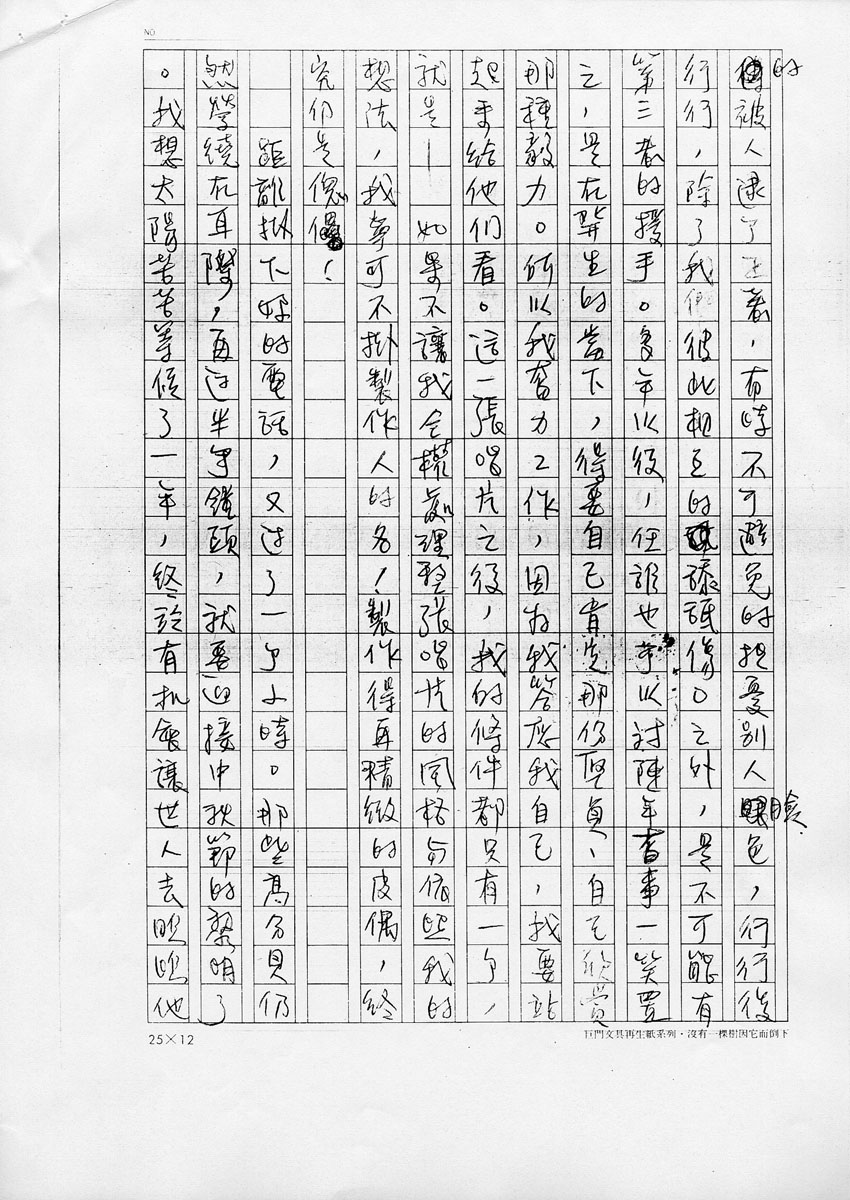 NO
的被人逮了正著,有時不可避免的担憂別人臉色,行行復
行行,除了我們彼此相互的舔舐傷口之外,是不可能有
第三者的援手。多年以後,任誰也可以對陳年舊事一笑置
之,是在發生的當下,得要自己肯定那份堅貞、自己欣賞
那種毅力。所以我奮力工作,因為我答應我自己,我要站
起來給他們看。這一張唱片之後,我的條件都只有一个,
就是—如果不讓我全權處理整張唱片的風格而依照我的
想法,我寧可不掛製作人的名!製作得再精緻的皮偶,終
究仍是傀儡!
距離掛下妳的電話,又過了一个小時。那些高分貝仍
然縈繞在耳際,再过半个鐘頭,就要迎接中秋節的黎明了
。我想太陽苦苦等候了一年,終於有机會讓世人去瞧瞧他
25×12
巨門文具再生紙系列・沒有一棵樹因它而倒下